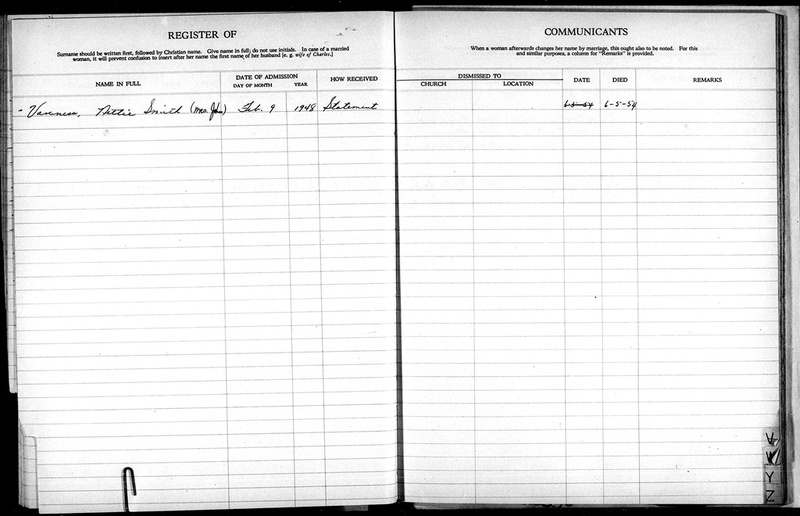 REGISTER OF
Surname should be written first, followed by Christian name. Give name in full; do not use initials. In case of a married
woman, it will prevent confusion to insert after her name the first name of her husband [e. g. wife of Charles.]
NAME IN FULL
DATE OF ADMISSION
DAY OF MONTH YEAR
HOW RECEIVED
- Vanness, Nettie Smith (Mrs. John) Feb. 9 1948 Statement
COMMUNICANTS
When a woman afterwards changes her name by marriage, this ought also to be noted. For this
and similar purposes, a column for "Remarks" is provided.
DISMISSED TO
CHURCH LOCATION
DATE DIED REMARKS
6-5-54 6-5-54
V
W
Y
Z